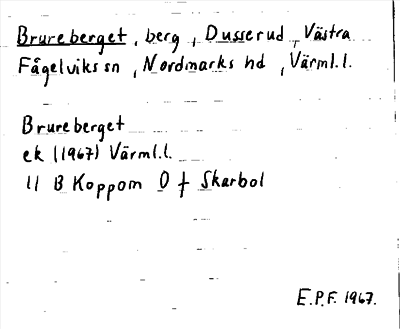 Brureberget, berg, Dusserud, Västra
Fågelviks sn, Nordmarks hd, Värml.l.
Brureberget
ek (1967) Värml.l.
11 B Koppom O f Skarbol
E.P.F. 1967.